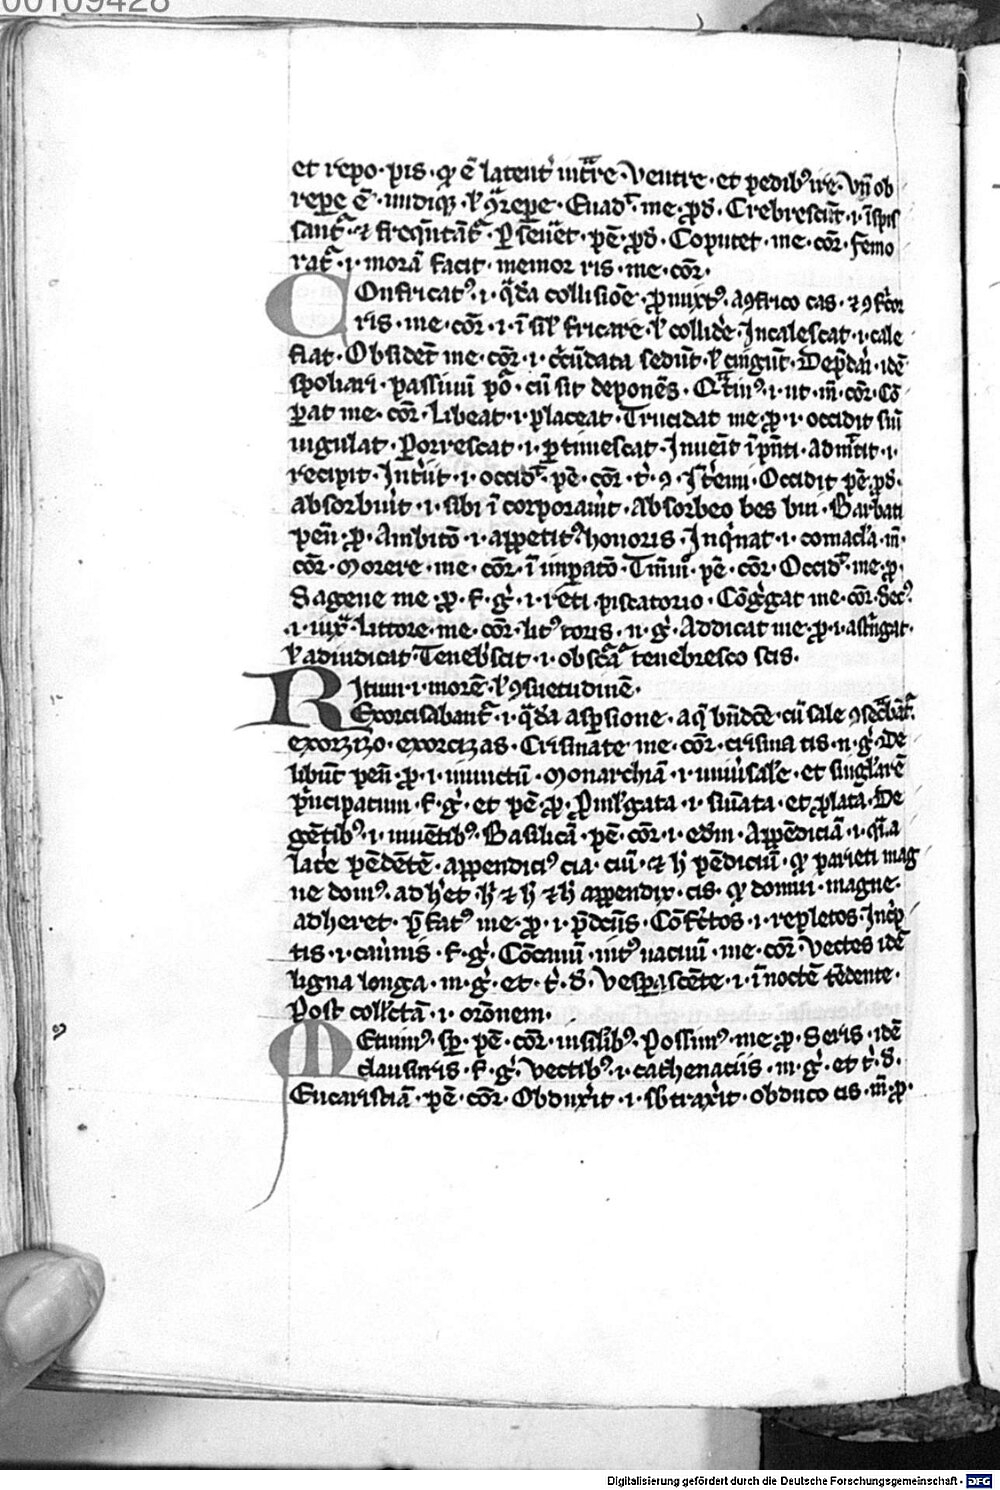 00109428
et repo · pis · qͥ ē latent᷑ intͣre · ventre · et pedibꝰ ire · vn̄ ob
repe᷑ ē · undiqꝫ · ł ꝯrepe᷑ · Euadt᷑ · me · ꝓd᷑ · Crebrescūt · i · īspis
sant᷑ · ⁊ freq̄ntāt᷑ · ꝑseūet · pēn · ꝓd᷑ · Coputet · me · cōr · femo
rat᷑ · i · morā facit · memor ris · me · cōr ·
Confricatꝰ · i · q̄da collisiōe · ꝓmixtꝰ · aꝯfrico cas · ⁊ ꝯfͥcor
ris · me · cōr · i · ī sił fricare · ł collide᷑ · Incalescat · i · cale
fiat · Obsidet᷑ me · cōr · i · c᷑cūdata sedūt · ł cingūt · Dep̄dari · idē
spoliari · passiuū pō · cū sit deponēs · Q̄tinꝰ · i · ut · m̄ · cōr · Cō
ꝑat me · cōr · Libeat · i · placeat · Trucidat me · ꝓ · i · occidit siū
iugulat · ꝑorrescat · i · ꝑtimescat · Inueīt ī p̄nti · admīttit · i ·
recipit · Intͥit · i · occidt᷑ · pēn · cōr · t᷑ · ꝯ · Occidit pēn · ꝓd᷑ ·
absorbuit᷑ · i · sibi ī corporauit᷑ · Absorbeo bes bui · Barbati
pēn · ꝓ · Ambitō · i · appetitꝰ honoris · Inq̄nat · i · comacła · m̄ ·
cōr · Morere · me · cōr · ī impatō · pēn · cōr · Occidt᷑ · me · ꝓ ·
Sagene me · ꝓ · f · g᷑ · i · reti · piscatorio · Cōg᷑gat me · cōr · Secꝰ
· i · iuxͣ · Littore · me · cōr · litꝰ toris · n · g᷑ · Addicat me · ꝓ · i · astͥngat ·
ł adiudicat · Teneb᷑scit · i · obscͣt᷑ tenebresco scis ·
Ritum · i · morē · ł ꝯsuetudinē ·
Exorcisabant᷑ · i · q̄da aspsione · aq̄ bn̄dcē · cū sale ꝯsec᷑bāt᷑ ·
exorzizo · exorcizas · Crismate me · cōr · crisma tis · n · g᷑ · De
libūt pēn · ꝓ · i · inuictū · Monarchiā · i · uniu᷑sale · et singl᷑arē
p̄ncipatum · f · g᷑ · et pēn · ꝓ · i · · et ꝓlatā · De
gētibꝰ · i · inuētibꝰ · Basilicā · pēn · cōr · i · edm̄ · Appēdiciā · i · a
late᷑ pēdētē · appendiciꝰ cia · ciū · ⁊ h̄ pēdiciū · qͥ parieti mag
ne domꝰ · adh᷑et · h̄ ⁊ h̄ ⁊ h̄ appendix · cis · qͥ domui · magne ·
adheret · p̄fatꝰ me · ꝓ · i · p̄dcūs · Cōfc᷑tos · i · repletos · Incͥp
tis · i · f · g᷑ · Cōcauū · me · cōr · vectes idē
ligna longa · m · g᷑ · et · t᷑ · d᷑ · vespascēte · i · ī noctē tēdente ·
Post collc᷑tā · i · orōnem ·
Metimꝰ · sp᷑ · pēn · cōr · Possimꝰ · me · ꝓ · Seris · idē
clausuris · f · g᷑ · vectibꝰ · i · cathenaciis · m · g᷑ · et t᷑ · d᷑ ·
Eucaristiā · pēn · cōr · Obduxit᷑ · i · sbtraxit᷑ · obduco cis · m̄ · ꝓ ·
Digitalisierung gefördert durch die Deutsche Forschungsgemeinschaft - DFG